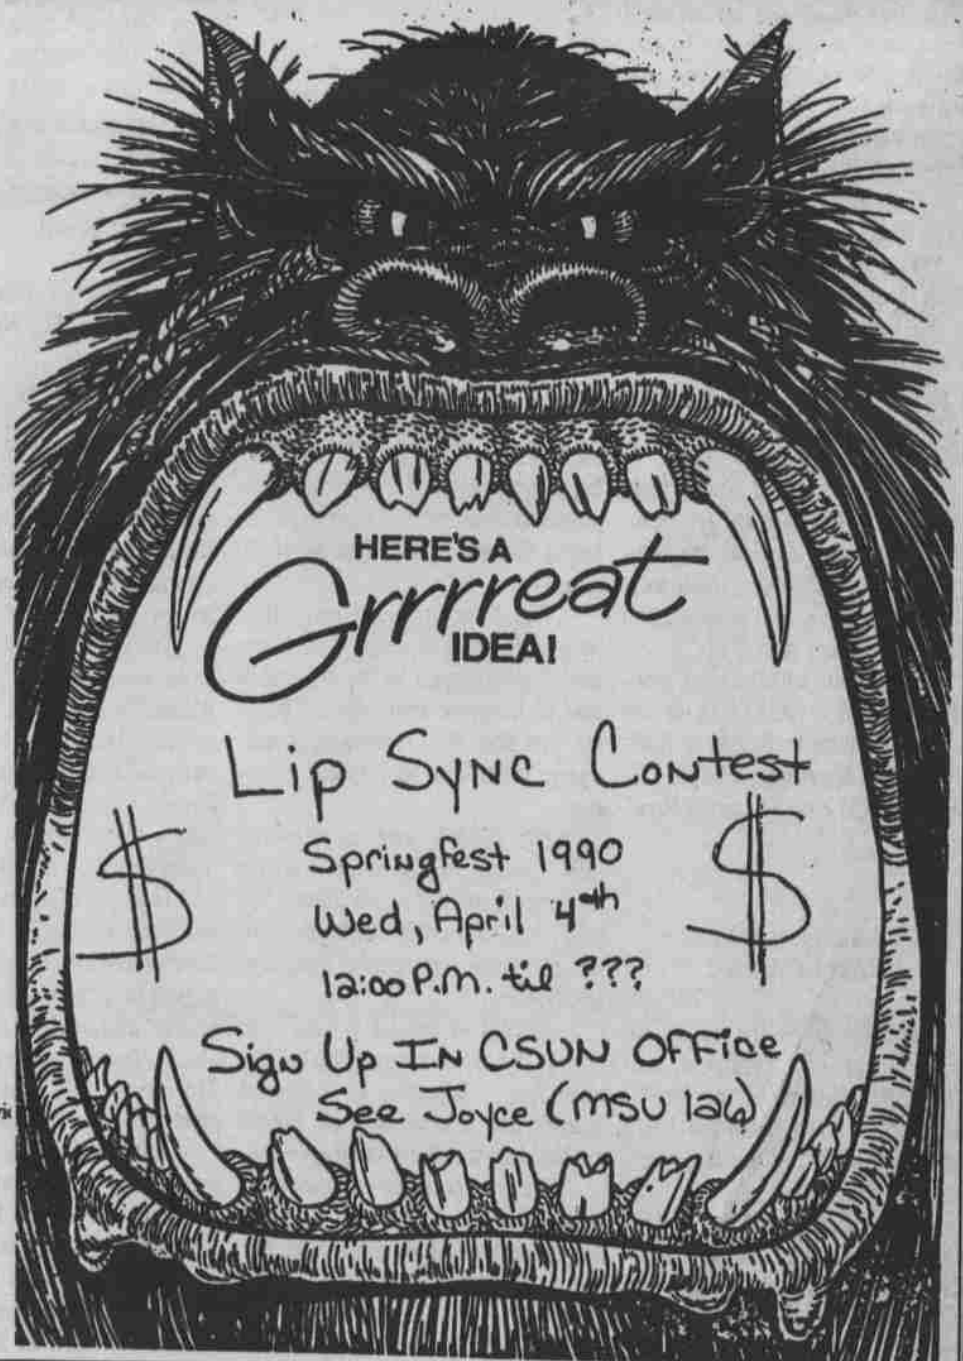 HERE'S A
Grrrreat
IDEA!
Lip Sync Contest
$ $
Springfest 1990
Wed, April 4th
12:00 P.M. til ???
Sign Up IN CSUN OFFice
See Joyce (MSU 126)